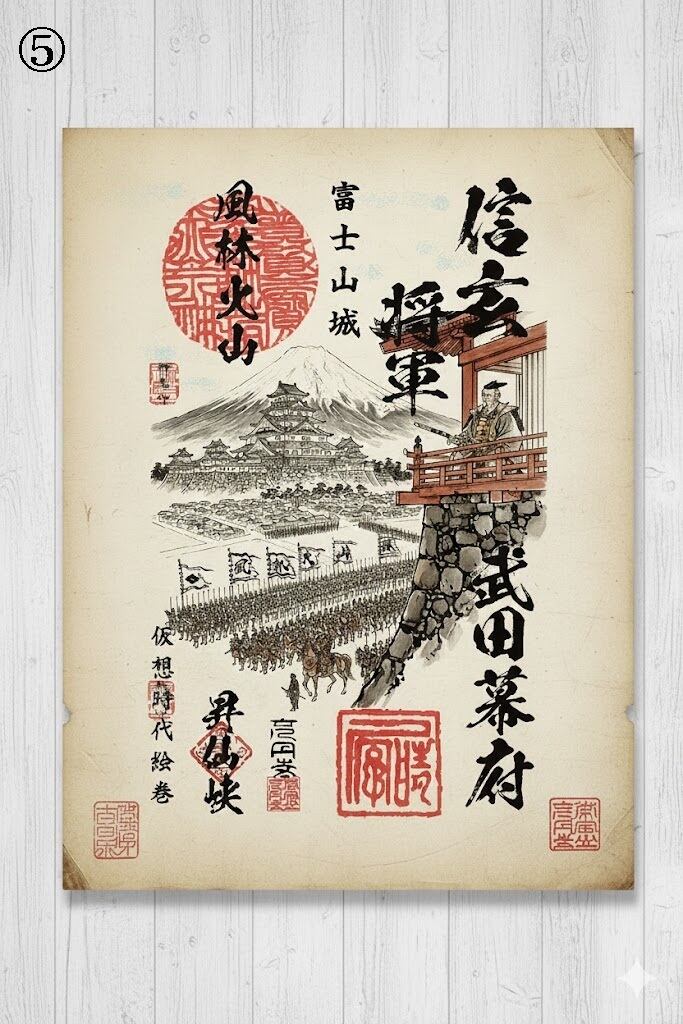 ⑤
信玄
将軍
武田幕府
富士山城
風林火山
昇仙峡
仮想時代絵巻
晴